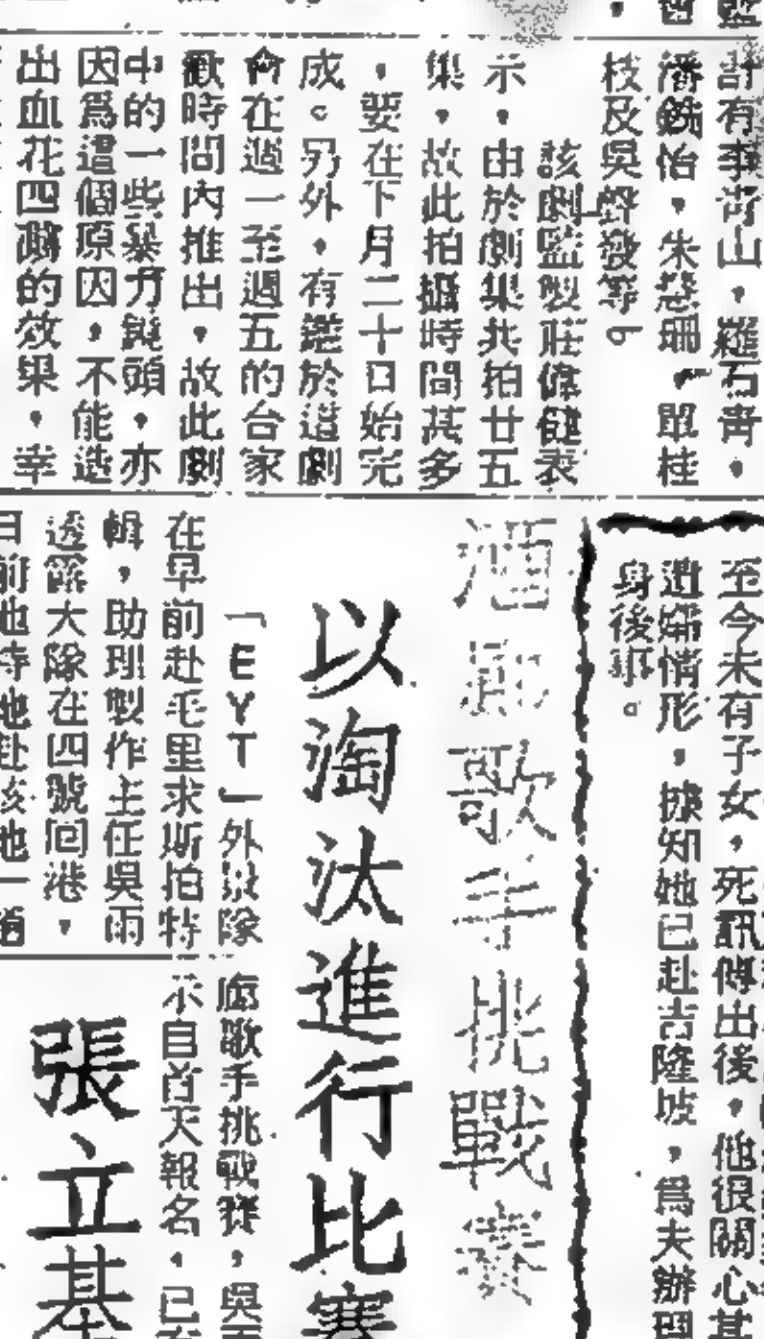 計有李青山,羅石青,
潘銑怡,朱慧珊,單桂
枝及吳聲發等。
該劇監製莊偉健表
示,由於劇集共拍廿五
集,故此拍攝時間甚多
,要在下月二十日始完
成。另外,有鑑於這劇
會在週一至週五的合家
歡時間內推出,故此劇
中的一些暴力鏡頭,亦
因為這個原因,不能造
出血花四濺的效果,幸
至今未有子女,死訊傳出後,他很關心其
遺孀情形,據知她已赴吉隆坡,為夫辦理
身後事。
酒廊歌手挑戰賽
以淘汰進行比賽
「EYT」外景隊
在早前赴毛里求斯拍特
輯,助理製作主任吳雨
透露大隊在四號回港,
日前他特地赴該地一
廊歌手挑戰賽,吳雨
示自首天報名,已有
張立基